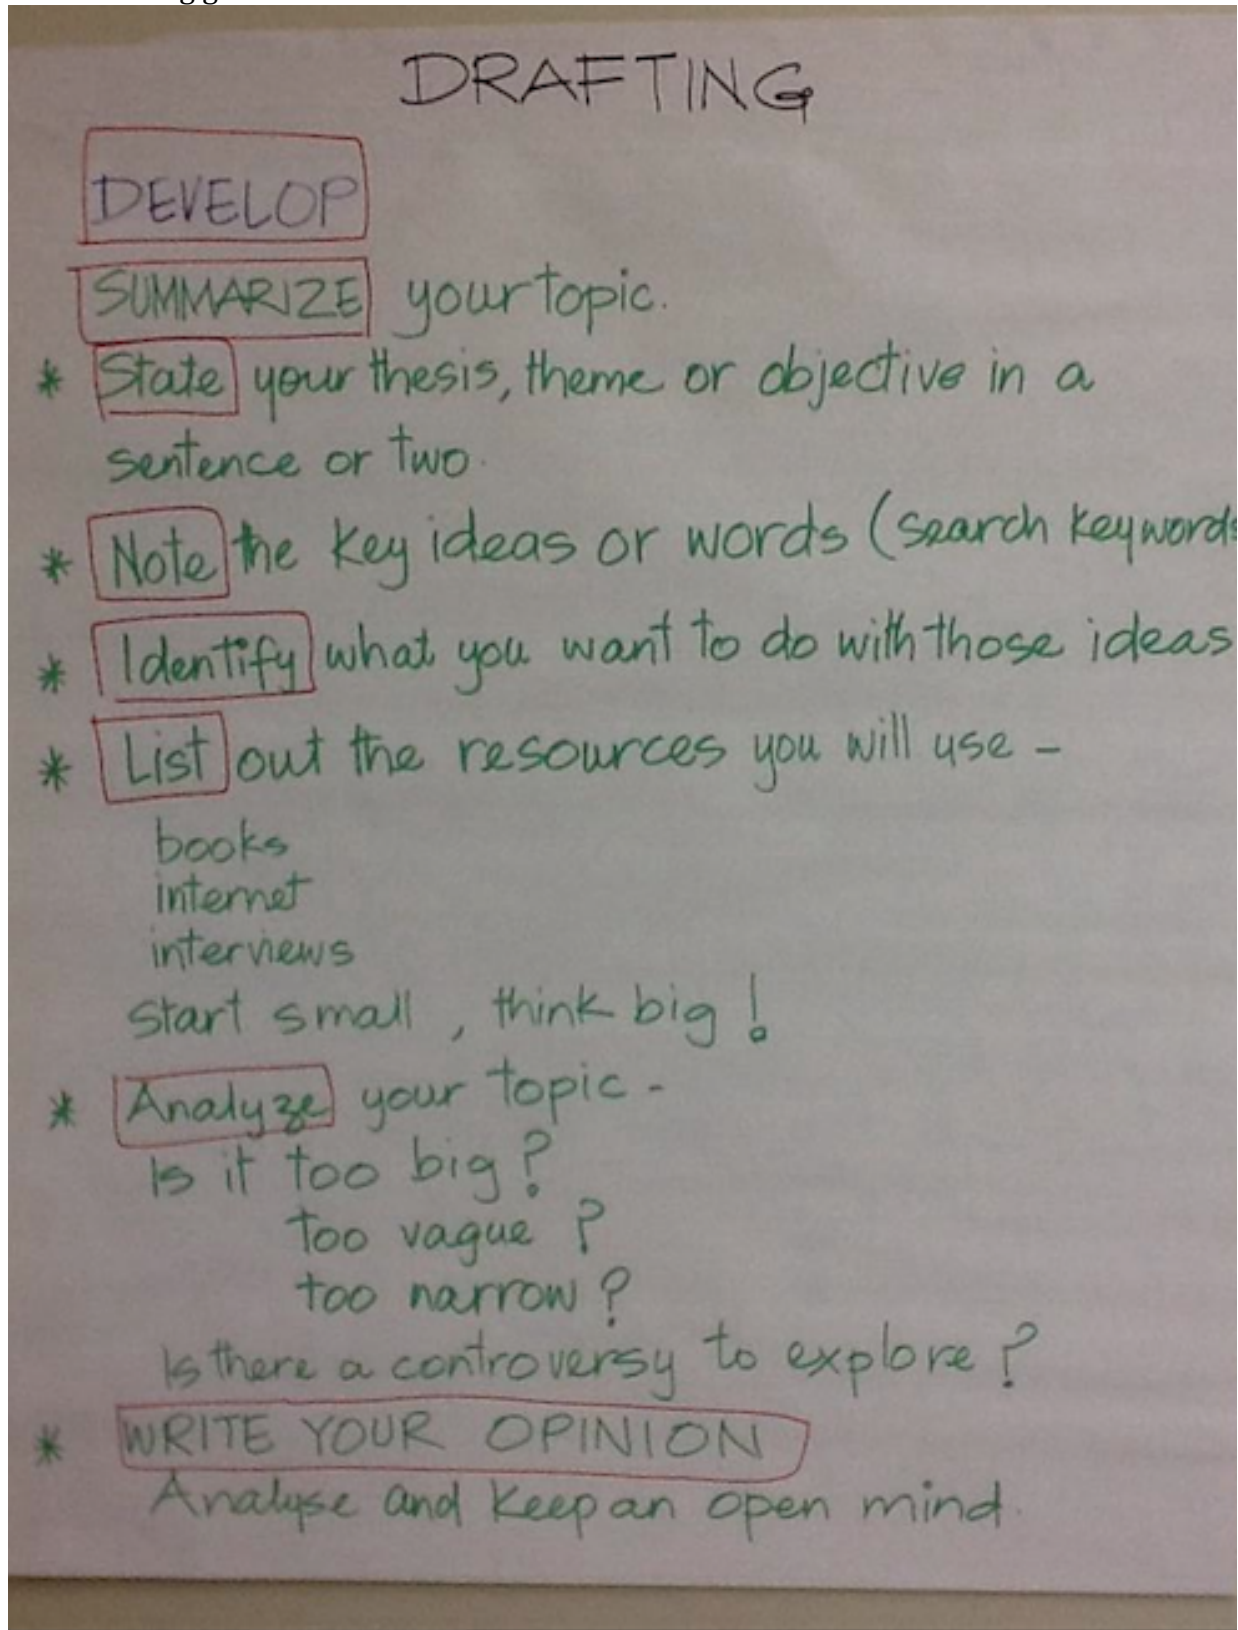 DRAFTING
DEVELOP
SUMMARIZE your topic.
* State your thesis, theme or objective in a
sentence or two.
* Note the key ideas or words (search keywords
* Identify what you want to do with those ideas
* List out the resources you will use -
books
internet
interviews
Start small, think big!
* Analyze your topic -
Is it too big?
too vague?
too narrow?
Is there a controversy to explore?
* WRITE YOUR OPINION
Analyse and keep an open mind.